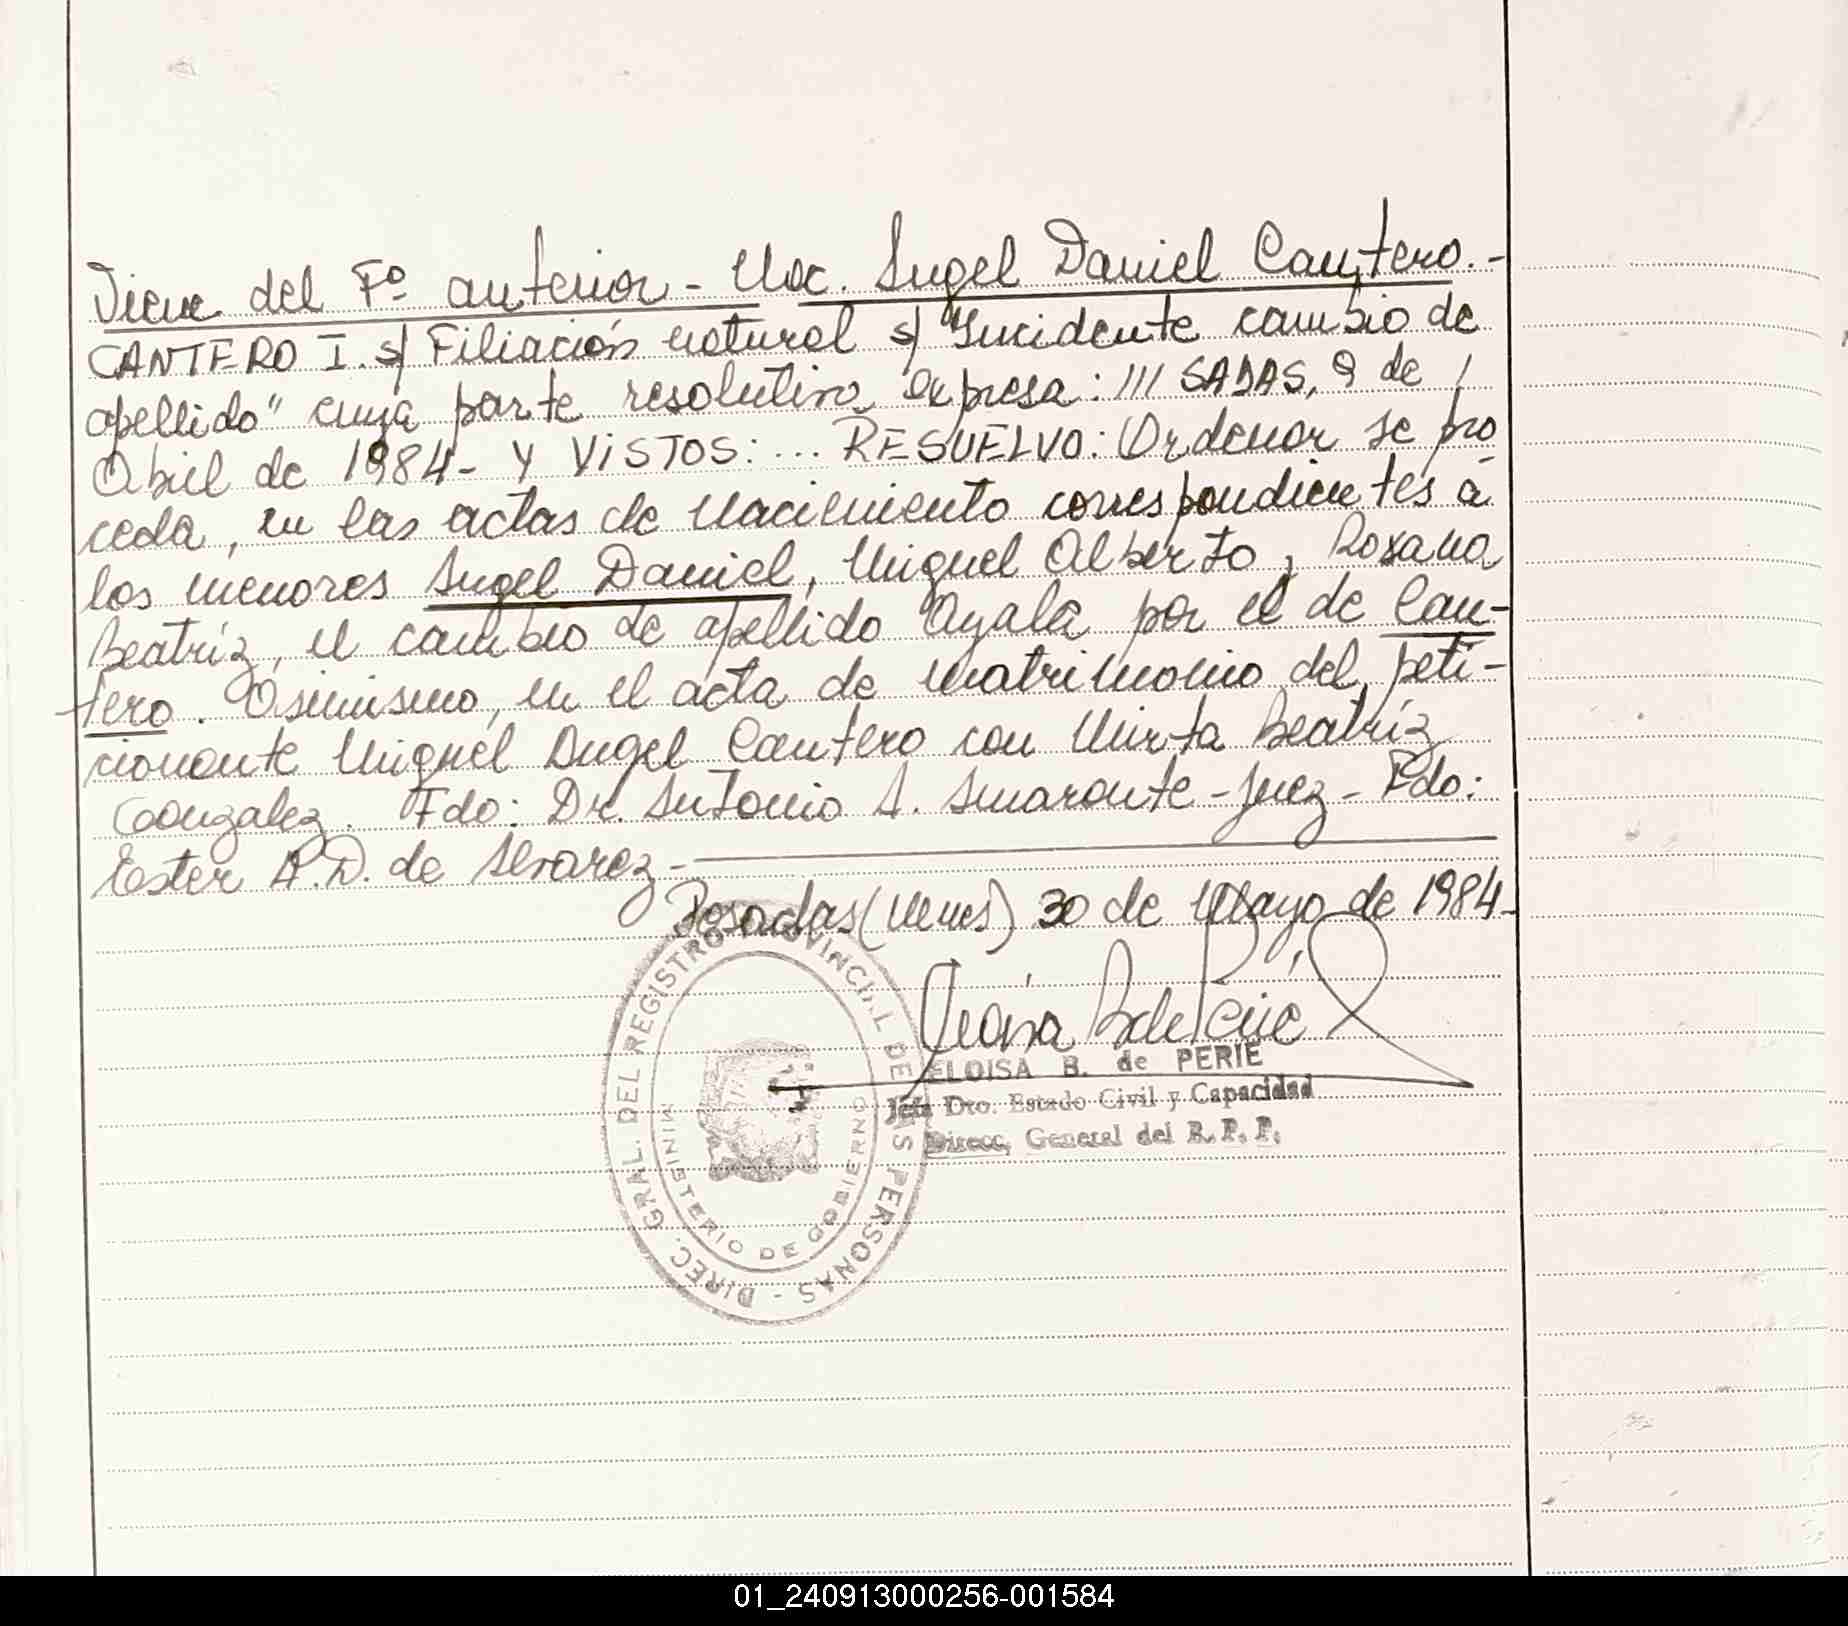 Viene del Fº anterior - Nac. Angel Daniel Cantero.-
CANTERO I. s/ Filiación natural s/ Incidente cambio de
apellido" cuya parte resolutiva expresa: /// SADAS, 9 de /
Abril de 1984- Y VISTOS: ... RESUELVO: Ordenar se pro
ceda, en las actas de Nacimiento correspondientes a
los menores Angel Daniel, Miguel Alberto, Roxana
Beatríz, el cambio de apellido Ayala por el de Can-
tero. Asimismo, en el acta de matrimonio del peti-
cionante Miguel Angel Cantero con Mirta Beatríz
Gonzalez. Fdo: Dr. Antonio A. Amarante - Juez - Fdo:
Ester A.D. de Alvarez -
Posadas (Mnes) 30 de Mayo de 1984-
ELOISA B. de PERIE
Jefa Dto. Estado Civil y Capacidad
Direcc. General del R. P. P.
DIREC. GRAL. DEL REGISTRO PROVINCIAL DE LAS PERSONAS -
MINISTERIO DE GOBIERNO
01_240913000256-001584